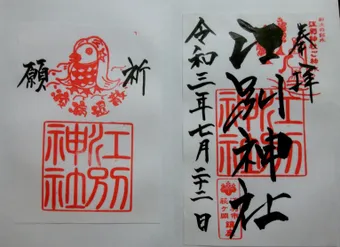 祈
願
江別
神社
奉拝
江別神社
令和三年七月二十二日
江別
神社